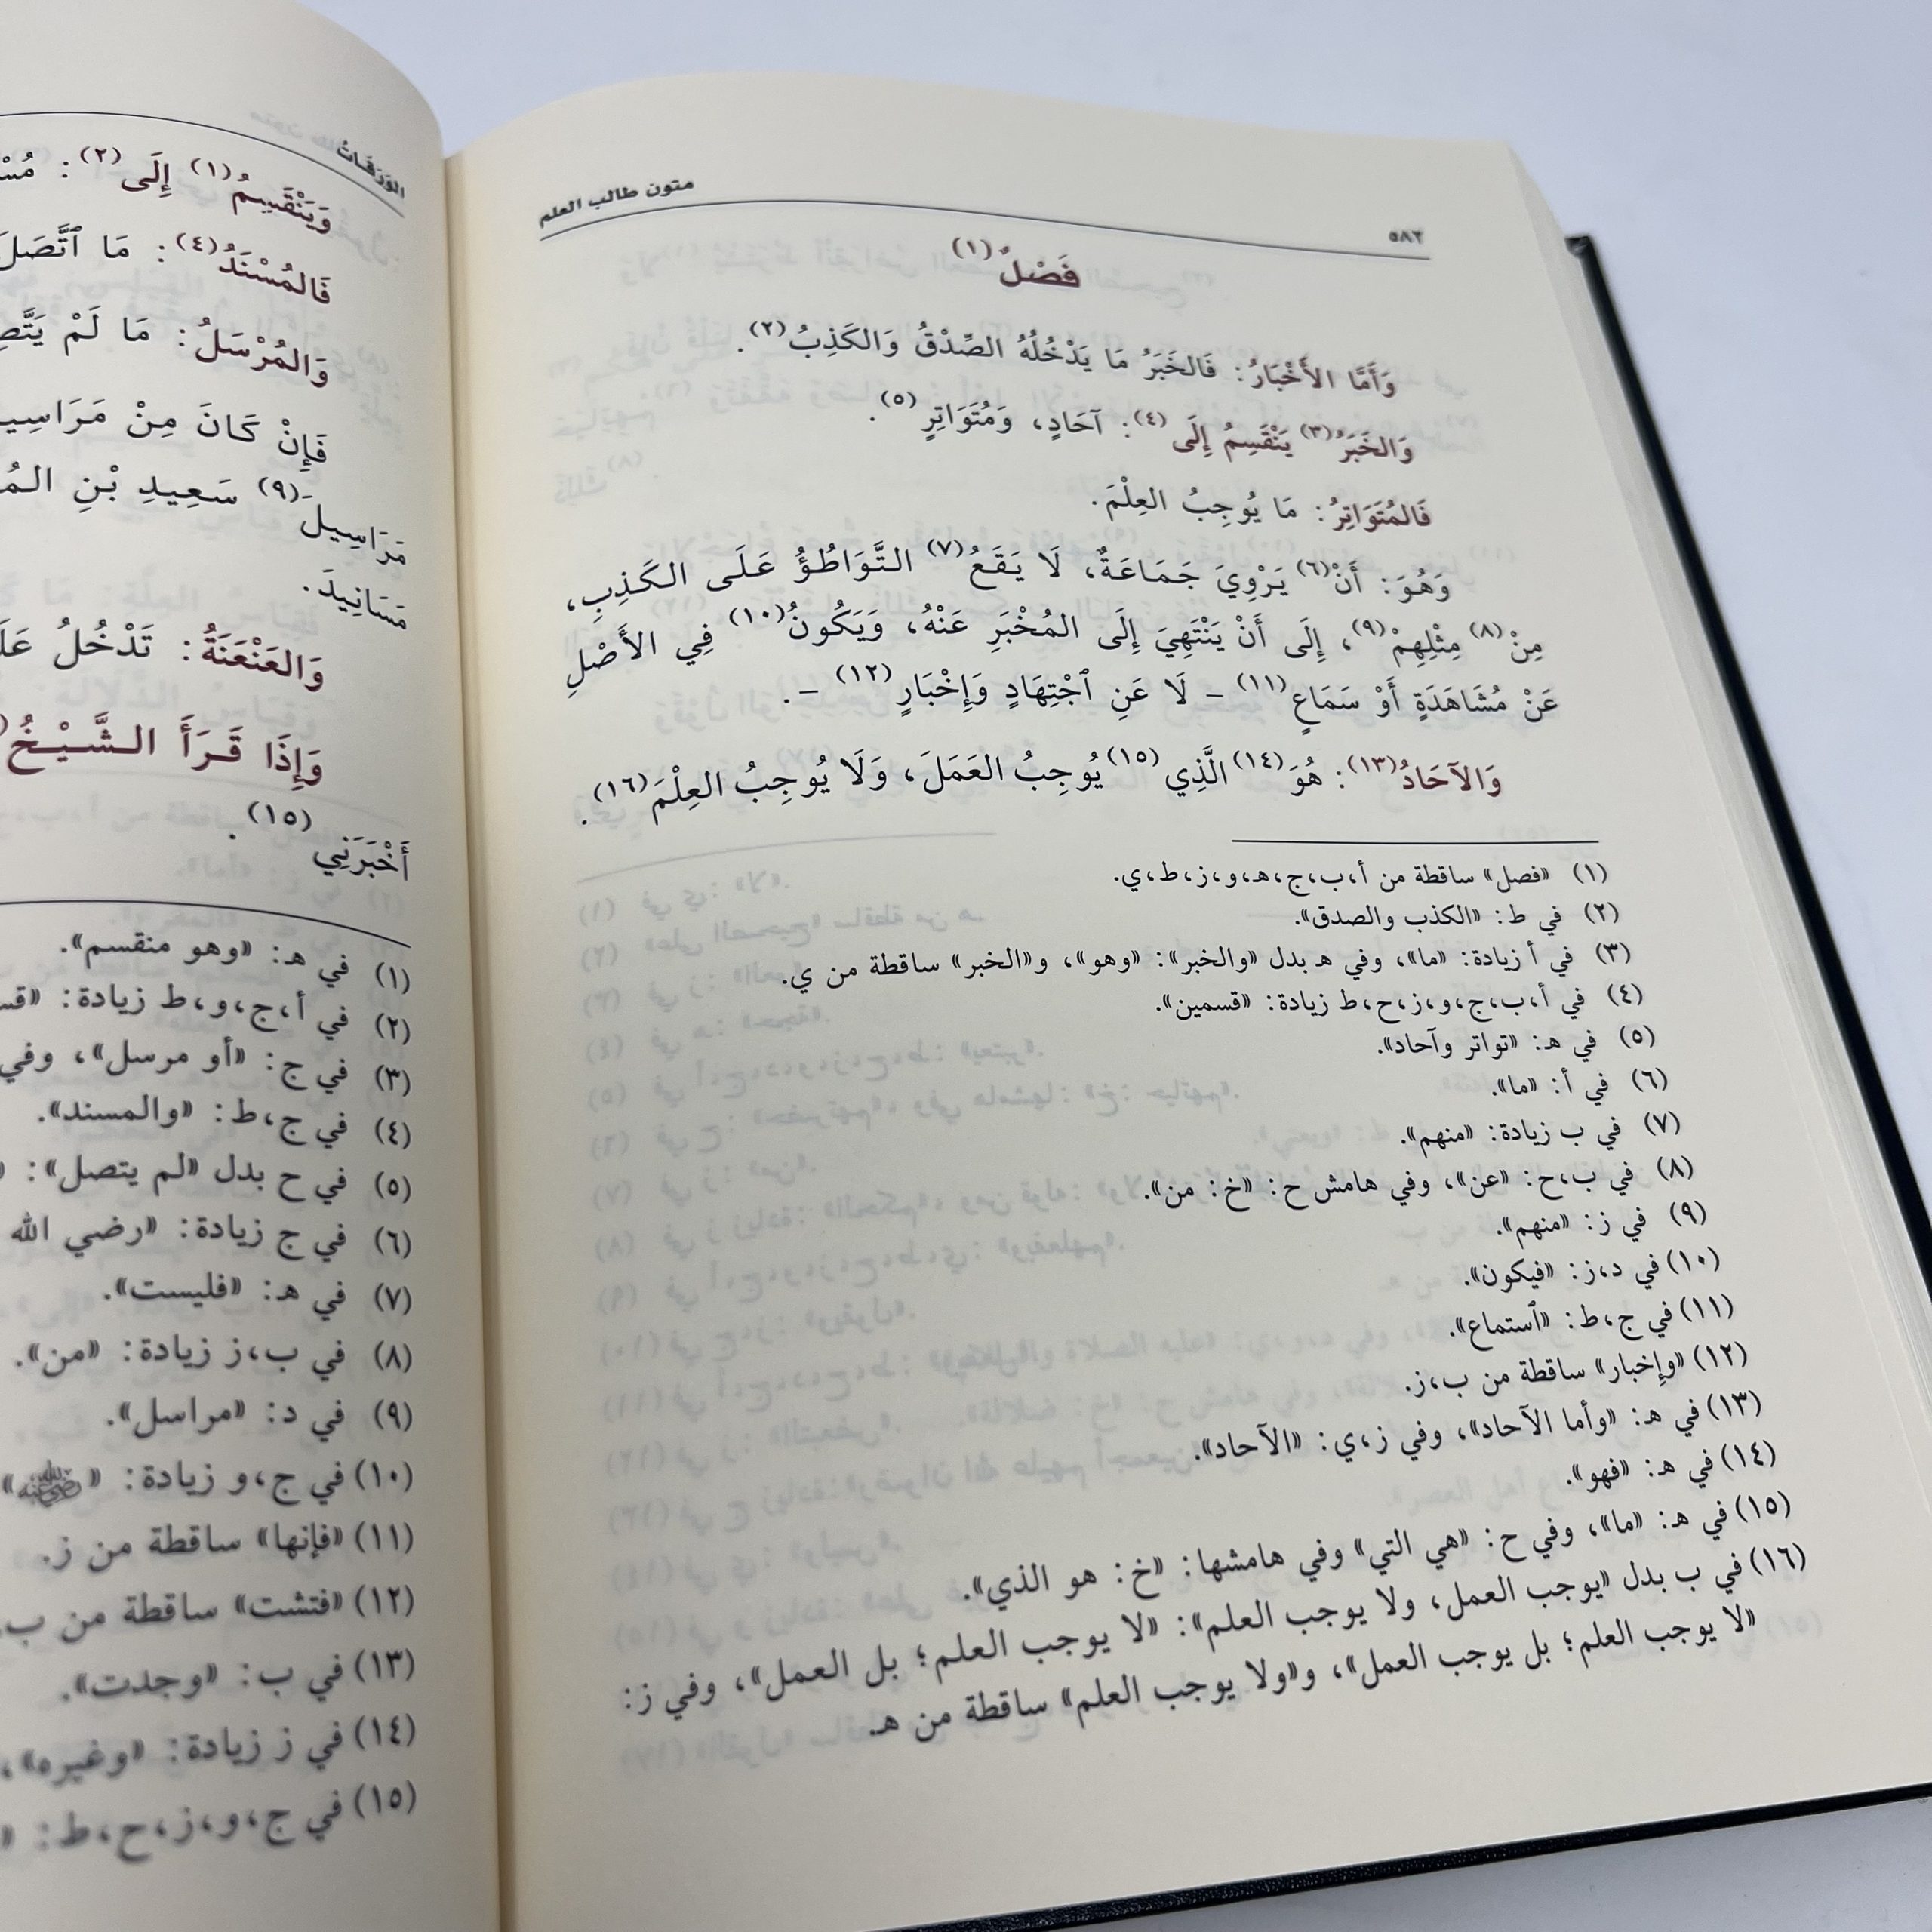 متون طالب العلم
٥٨٢
فَصْلٌ(١)
وَأَمَّا الأَخْبَارُ: فَالخَبَرُ مَا يَدْخُلُهُ الصِّدْقُ وَالكَذِبُ(٢).
وَالخَبَرُ(٣) يَنْقَسِمُ إِلَى(٤): آحَادٍ، وَمُتَوَاتِرٍ(٥).
فَالمُتَوَاتِرُ: مَا يُوجِبُ العِلْمَ.
وَهُوَ: أَنْ(٦) يَرْوِيَ جَمَاعَةٌ، لَا يَقَعُ(٧) التَّوَاطُؤُ عَلَى الكَذِبِ،
مِنْ(٨) مِثْلِهِمْ(٩)، إِلَى أَنْ يَنْتَهِيَ إِلَى المُخْبَرِ عَنْهُ، وَيَكُونُ(١٠) فِي الأَصْلِ
عَنْ مُشَاهَدَةٍ أَوْ سَمَاعٍ(١١) - لَا عَنِ ٱجْتِهَادٍ وَإِخْبَارٍ(١٢) -.
وَالآحَادُ(١٣): هُوَ(١٤) الَّذِي(١٥) يُوجِبُ العَمَلَ، وَلَا يُوجِبُ العِلْمَ(١٦).
(١) «فصل» ساقطة من أ،ب،ج،هـ،و،ز،ط،ي.
(٢) في ط: «الكذب والصدق».
(٣) في أ زيادة: «ما»، وفي هـ بدل «والخبر»: «وهو»، و«الخبر» ساقطة من ي.
(٤) في أ،ب،ج،و،ز،ح،ط زيادة: «قسمين».
(٥) في هـ: «تواتر وآحاد».
(٦) في أ: «ما».
(٧) في ب زيادة: «منهم».
(٨) في ب،ح: «عن»، وفي هامش ح: «خ: من».
(٩) في ز: «منهم».
(١٠) في د،ز: «فيكون».
(١١) في ج،ط: «ٱستماع».
(١٢) «وإخبار» ساقطة من ب،ز.
(١٣) في هـ: «وأما الآحاد»، وفي ز،ي: «الآحاد».
(١٤) في هـ: «فهو».
(١٥) في هـ: «ما»، وفي ح: «هي التي» وفي هامشها: «خ: هو الذي».
(١٦) في ب بدل «يوجب العمل، ولا يوجب العلم»: «لا يوجب العلم؛ بل العمل»، وفي ز:
«لا يوجب العلم؛ بل يوجب العمل»، و«ولا يوجب العلم» ساقطة من هـ.
الوَرَقَاتُ
وَيَنْقَسِمُ(١) إِلَى(٢):
فَالمُسْنَدُ(٤): مَا ٱتَّصَلَ
وَالمُرْسَلُ: مَا لَمْ
فَإِنْ كَانَ مِنْ
مَرَاسِيلَ(٩) سَعِيدِ بْنِ
مَسَانِيدَ.
وَالعَنْعَنَةُ: تَدْخُلُ
وَإِذَا قَرَأَ الشَّيْخُ
أَخْبَرَنِي(١٥).
(١) في هـ: «وهو منقسم».
(٢) في أ،ج،و،ط زيادة:
(٣) في ج: «أو مرسل»، وفي
(٤) في ج،ط: «والمسند».
(٥) في ح بدل «لم يتصل»:
(٦) في ج زيادة: «رضي الله
(٧) في هـ: «فليست».
(٨) في ب،ز زيادة: «من».
(٩) في د: «مراسل».
(١٠) في ج،و زيادة:
(١١) «فإنها» ساقطة من ز.
(١٢) «فتشت» ساقطة من ب
(١٣) في ب: «وجدت».
(١٤) في ز زيادة: «وغيره»،
(١٥) في ج،و،ز،ح،ط: «